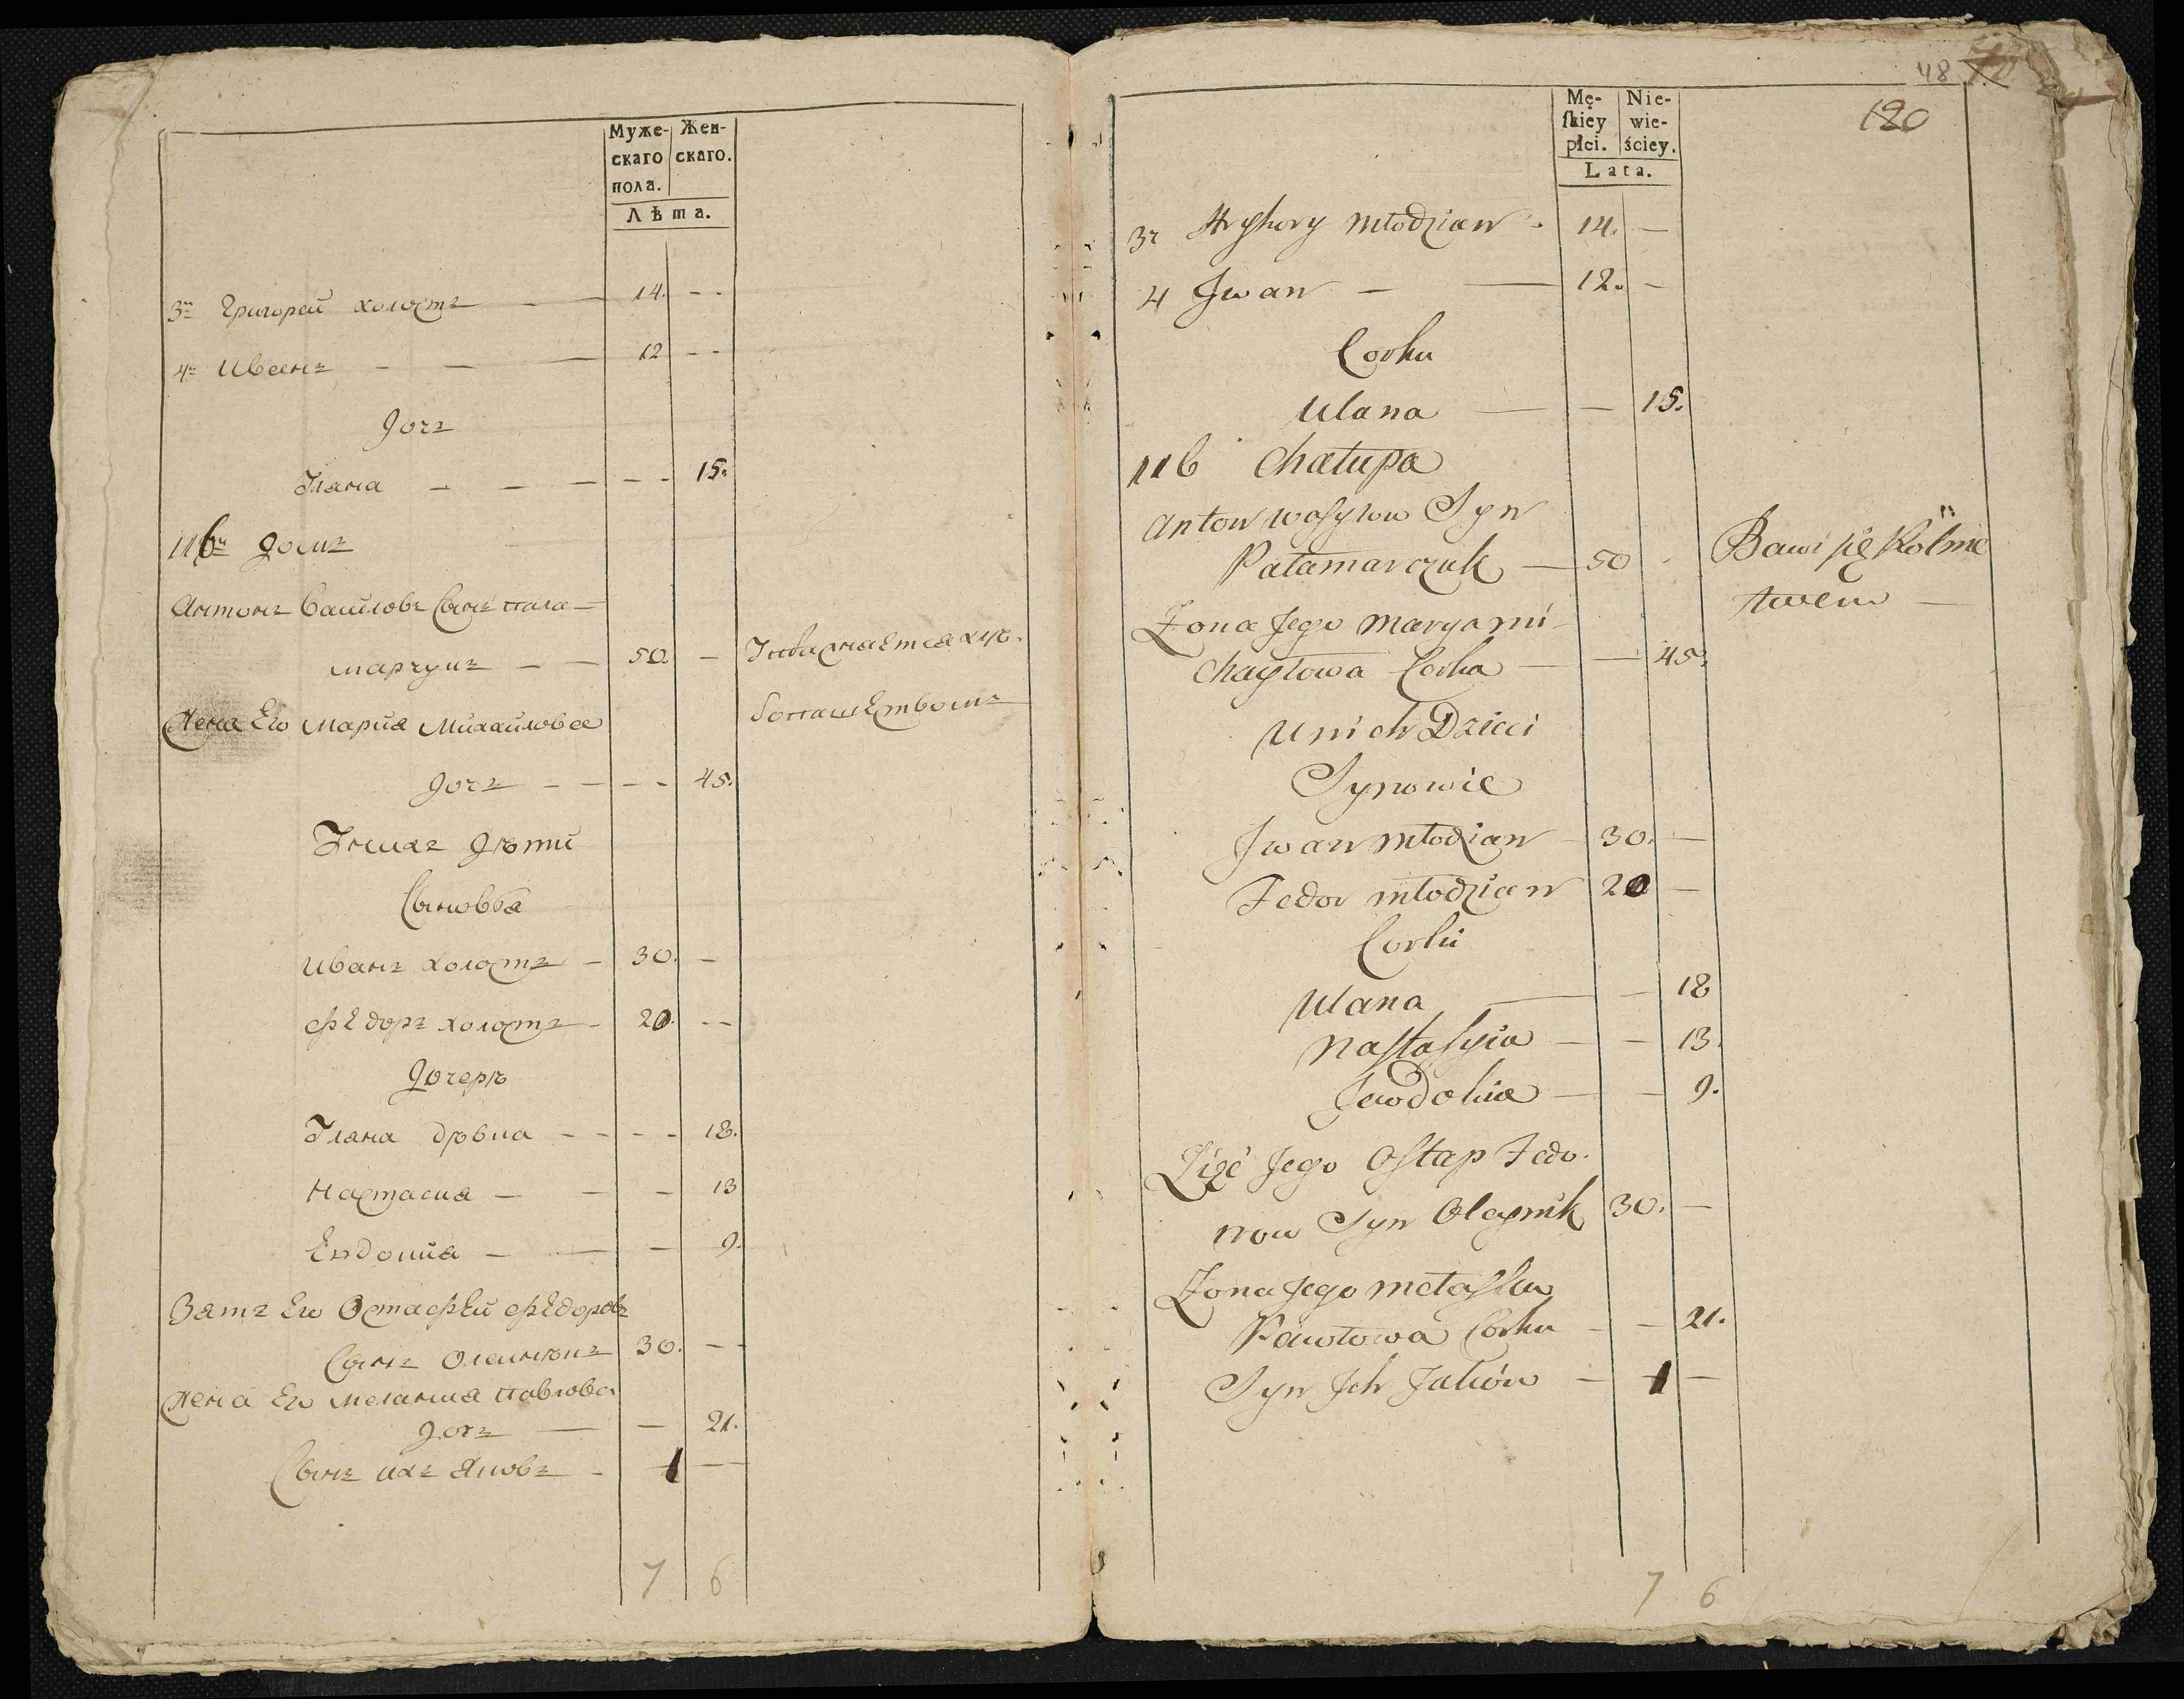 Муже-
скаго
пола.
Жен-
скаго.
Лѣта.
3й Григорей холостъ — — 14. - -
4й Иванъ - — — 12 - -
Дочъ
Уляна — — — - - 15.
116й домъ
Антонъ Василовъ Сынъ пала-
марчукъ — — 50. —
Жена Его Мария Михайлова
Дочъ - - - - 45.
Унихъ Дѣти
Сыновья
Иванъ холостъ — 30. —
Фѣдоръ холостъ - 20. - -
Дочерѣ
Уляна дѣвка - - - - 18.
Настасия — — — 13
Евдокия — — — 9.
Зять Его Остафѣй Фѣдоровъ
Сынъ Олейнѣкъ 30. - -
Жена Его Мелания Павлова
Дочъ — — 21.
Сынъ ихъ Яковъ - 1 —
7 6
Упражнается хлѣ-
бопашествомъ
48
120
Mę-
ſkiey
płci.
Nie-
wie-
ściey.
Lata.
3г Hryhory Młodzian - 14. —
4 Jwan — — 12. -
Corka
Ulana — — 15.
116 Chałupa
Anton Wasylow Syn
Pałamarczuk — 50 -
Żona Jego Marya Mi-
chayłowa Corka — — 45.
U nich Dzieci
Synowie
Jwan Młodzian - 30. —
Fedor młodzian 20 —
Corki
Ulana — — 18
Nastasyia — — 13.
Jewdokia — — 9.
Zięć Jego Ostap Fedo-
row Syn Oleynik 30. —
Żona Jego Melaska
Pawłowa Corka - — 21.
Syn Jch Jakow — 1 —
7 6
Bawi się Rolnic
twem —